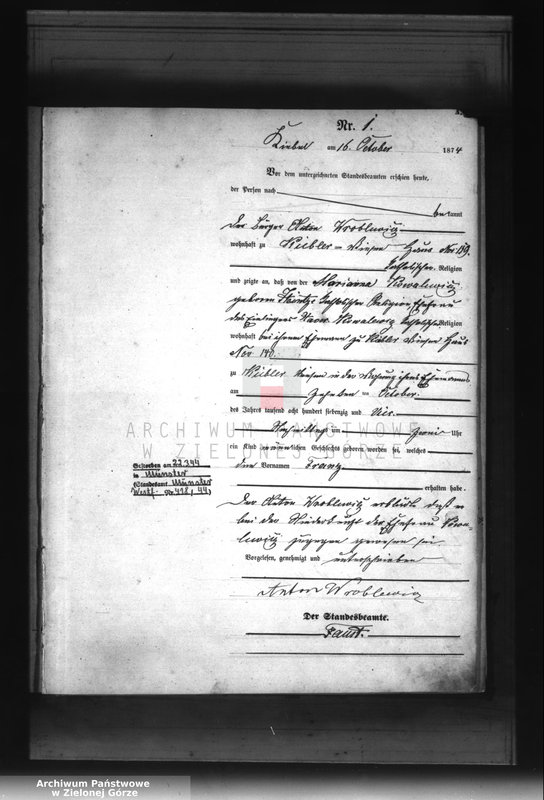 Nr. 1.
Kiebel am 16. October 1874
Vor dem unterzeichneten Standesbeamten erschien heute,
der Person nach
bekannt
der Bürger Anton Wroblewicz
wohnhaft zu Kiebler Wiesen Haus Nro: 139.
katholischer Religion
und zeigte an, daß von der Marianna Kowalewicz
geborene katholischer Religion, Ehefrau
des Kowalewicz katholischer Religion
wohnhaft bei ihrem Ehemann zu Kiebler Wiesen Haus
Nro. 140.
zu Kiebler Wiesen in der Wohnung ihres Ehemannes
am Zehnten ten October
des Jahres tausend acht hundert siebenzig und vier
Nachmittags um zwei Uhr
ein Kind männlichen Geschlechts geboren worden sei, welches
den Vornamen Franz
erhalten habe.
Der Anton Wroblewicz erklärte daß er
bei der Niederkunft der Ehefrau Kowa-
lewicz zugegen gewesen sei
Vorgelesen, genehmigt und unterschrieben
Anton Wroblewicz
Der Standesbeamte.
Faust.
Gestorben am 23.3.44
in Münster
Standesamt Münster
Westf. 418, 44,
ARCHIWUM PAŃSTWOWE
W ZIELONEJ GÓRZE
Archiwum Państwowe
w Zielonej Górze